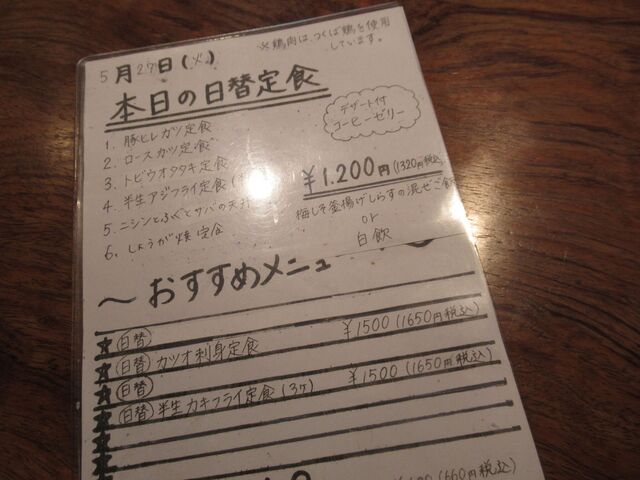 ※鶏肉は、つくば鶏を使用
しています。
5月27日(火)
本日の日替定食
デザート付
コーヒーゼリー
1. 豚ヒレカツ定食
2. ロースカツ定食
3. トビウオタタキ定食
4. 半生アジフライ定食
5. ニシンとふぐとサバの天丼
6. しょうが焼定食
¥1.200円(1320円税込)
梅しそ釜揚げしらすの混ぜご飯
or
白飯
~おすすめメニュー
★(日替)
★(日替)カツオ刺身定食 ¥1500(1650円税込)
★(日替)
★(日替)半生カキフライ定食(3ヶ) ¥1500(1650円税込)
(660円税込)